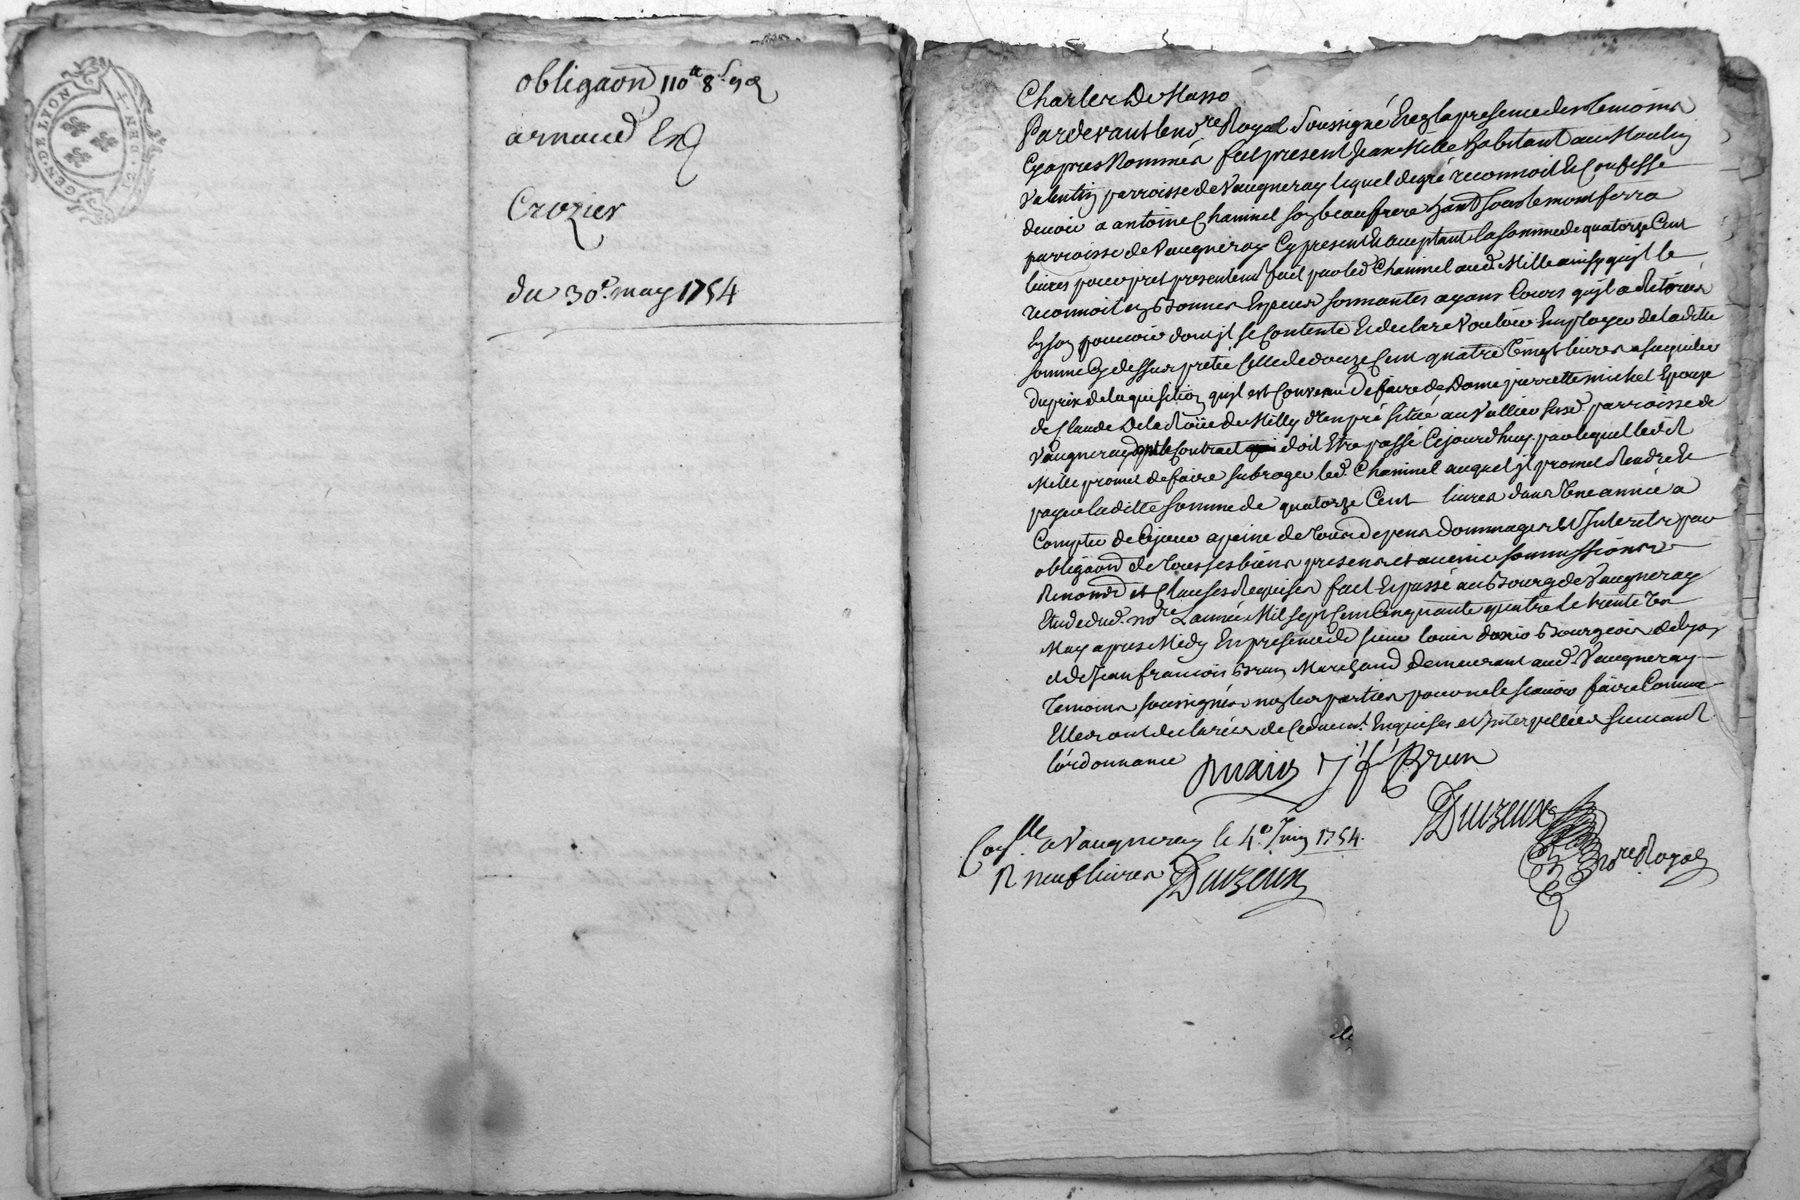 GEN. DE LYON
obligaond 110ᵗᵗ 8ˢ 9ᵈ
arnaud En
Crozier
du 30ᵉ. may 1754
Charles De Masso
Pardevant le noʳᵉ Royal Soussigné Et En la presence des temoins
Cy apres Nommés fut present Jean Mille habitant au Moulin
Valentin parroisse de Vaugneray lequel de gré reconnoit Et Confesse
devoir a antoine Chaninel son beaufrere habᵗ sous le montferra
parroisse de Vaugneray Cy present Et acceptant la somme de quatorze Cent
livres pour pret presentement fait par led. Chaninel aud. Mille ainsy quil le
reconnoit En Bonnes Especes sonnantes ayans Cours quil a Retirées
En son pouvoir dont jl se Contente Et declare Vouloir Employer de laditte
somme Cy dessus pretée Celle de douze Cent quatre Vingt livres a
du prix de laquisition quil est Convenu De faire de Dame pierrette michel Epouze
de Claude De la Roüe du Milly d'un pré situé au Vallier susd. parroisse de
Vaugneray dont le Contract doit Etre passé Cejourdhuy par lequel ledit
Mille promet de faire subroger led. Chaninel auquel jl promet Rendre Et
payer laditte somme de quatorze Cent livres dans Une année a
Compter de Cejour a peine de tous depens dommages Et Interets par
obligaond de tous ses biens presens et avenir soummissions
Renond et Clauses Requises fait Et passé au Bourg de Vaugneray
Etude dud. noʳᵉ L'année Mil sept Cent Cinquante quatre le trente
May apres Midy En presence de sieur louis Bourgeois de Lyon
et de Jean francois Brun Marchand demeurant aud. Vaugneray
Temoins soussignés non les parties pour ne le scavoir faire Comme
Elles ont declarées de Ce Enquises et Interpellées suivant
l'ordonnance
j f Brun
Duzeux
noʳᵉ Royal
Conˡˡᵉ a Vaugneray le 4ᵉ Juin 1754.
R neuf livres Duzeux